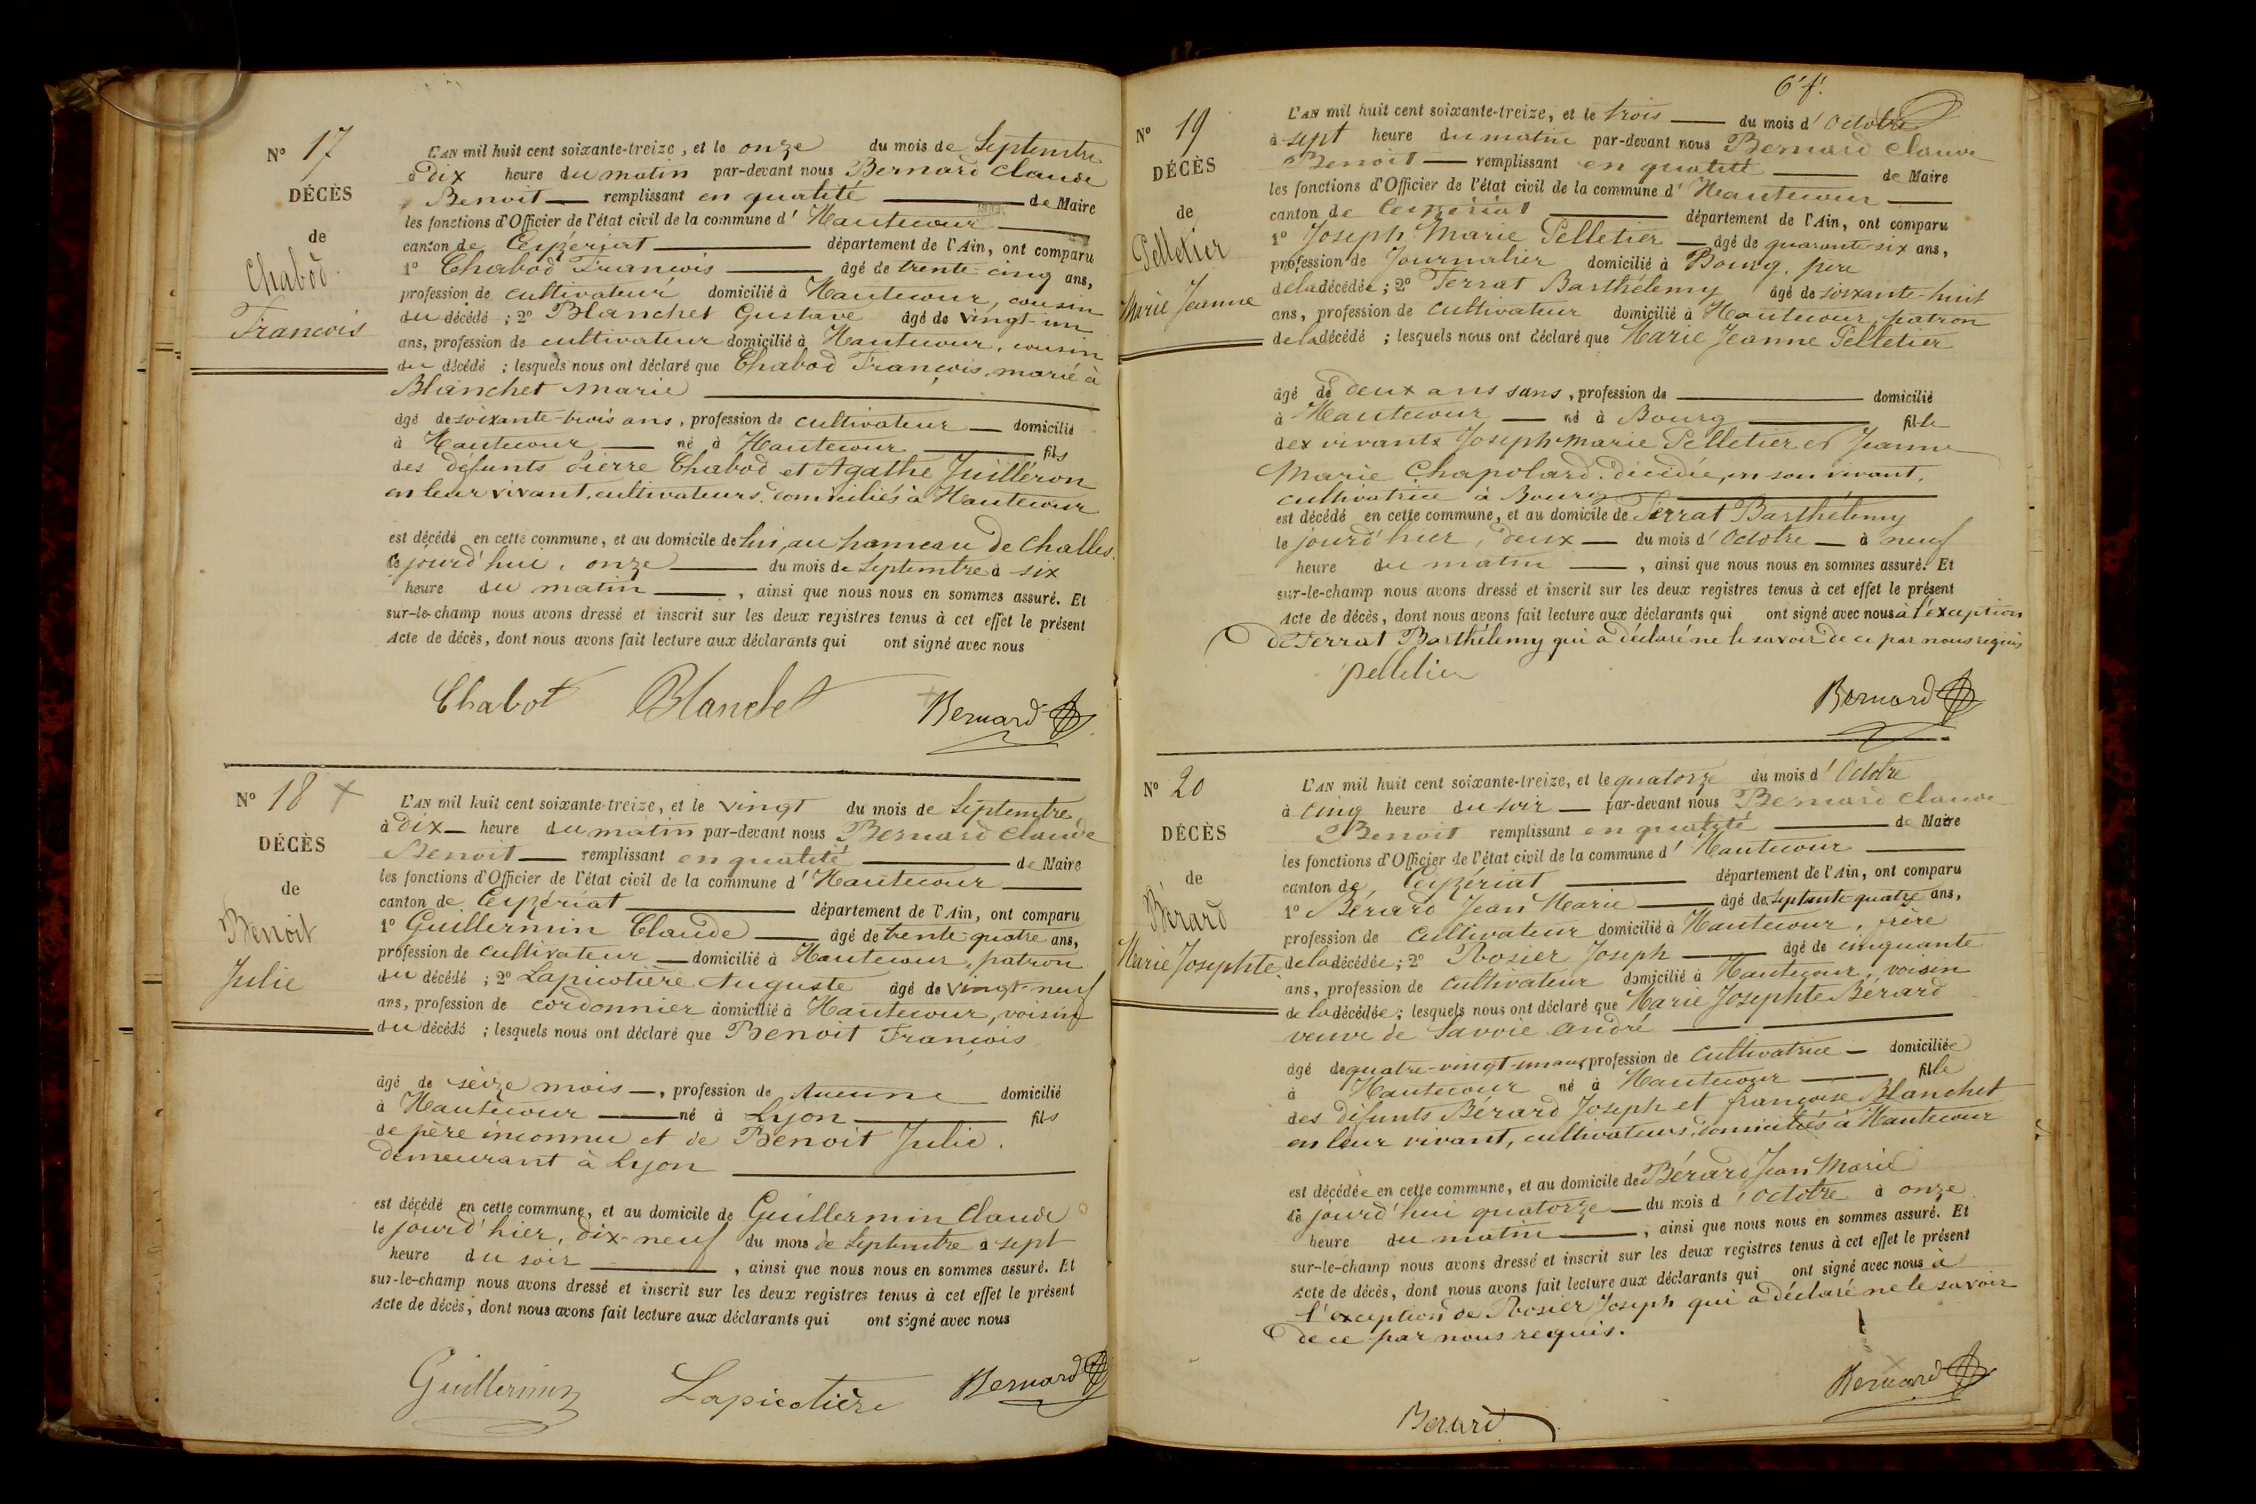 N° 17
DÉCÈS
de
Chabod
François
L'AN mil huit cent soixante-treize, et le onze du mois de Septembre
à dix heure du matin par-devant nous Bernard Claude
Benoit remplissant en qualité de Maire
les fonctions d'Officier de l'état civil de la commune d'Hautecour
canton de Ceyzériat département de l'Ain, ont comparu
1° Chabod François âgé de trente-cinq ans,
profession de cultivateur domicilié à Hautecour, cousin
du décédé ; 2° Blanchet Gustave âgé de vingt-un
ans, profession de cultivateur domicilié à Hautecour, cousin
du décédé ; lesquels nous ont déclaré que Chabod François, marié à
Blanchet Marie
âgé de soixante-trois ans, profession de cultivateur domicilié
à Hautecour né à Hautecour fils
des défunts Pierre Chabod et Agathe Juilléron
en leur vivant, cultivateurs, domiciliés à Hautecour
est décédé en cette commune, et au domicile de lui, au hameau de Challes
ce jourd'hui, onze du mois de Septembre à six
heure du matin, ainsi que nous nous en sommes assuré. Et
sur-le-champ nous avons dressé et inscrit sur les deux registres tenus à cet effet le présent
Acte de décès, dont nous avons fait lecture aux déclarants qui ont signé avec nous
Chabot Blanchet Bernard
N° 18
DÉCÈS
de
Benoit
Julie
L'AN mil huit cent soixante-treize, et le vingt du mois de Septembre
à dix heure du matin par-devant nous Bernard Claude
Benoit remplissant en qualité de Maire
les fonctions d'Officier de l'état civil de la commune d'Hautecour
canton de Ceyzériat département de l'Ain, ont comparu
1° Guillermin Claude âgé de trente-quatre ans,
profession de cultivateur domicilié à Hautecour, patron
du décédé ; 2° Lapicotière Auguste âgé de vingt-neuf
ans, profession de cordonnier domicilié à Hautecour, voisin
du décédé ; lesquels nous ont déclaré que Benoit François
âgé de seize mois, profession de Aucune domicilié
à Hautecour né à Lyon fils
de père inconnu et de Benoit Julie.
demeurant à Lyon
est décédé en cette commune, et au domicile de Guillermin Claude
le jourd'hier, dix-neuf du mois de Septembre à sept
heure du soir, ainsi que nous nous en sommes assuré. Et
sur-le-champ nous avons dressé et inscrit sur les deux registres tenus à cet effet le présent
Acte de décès, dont nous avons fait lecture aux déclarants qui ont signé avec nous
Guillermin Lapicotière Bernard
N° 19
DÉCÈS
de
Pelletier
Marie Jeanne
L'AN mil huit cent soixante-treize, et le trois du mois d'Octobre
à sept heure du matin par-devant nous Bernard Claude
Benoit remplissant en qualité de Maire
les fonctions d'Officier de l'état civil de la commune d'Hautecour
canton de Ceyzériat département de l'Ain, ont comparu
1° Joseph Marie Pelletier âgé de quarante-six ans,
profession de Journalier domicilié à Bourg, père
de la décédée ; 2° Ferrat Barthélemy âgé de soixante-huit
ans, profession de cultivateur domicilié à Hautecour, patron
de la décédé ; lesquels nous ont déclaré que Marie Jeanne Pelletier
âgé de deux ans sans, profession de domicilié
à Hautecour né à Bourg fille
des vivants Joseph-Marie Pelletier et Jeanne
Marie Chapolard, décédée, en son vivant,
cultivatrice à Bourg
est décédé en cette commune, et au domicile de Ferrat Barthélemy
le jourd'hier, deux du mois d'Octobre à neuf
heure du matin, ainsi que nous nous en sommes assuré. Et
sur-le-champ nous avons dressé et inscrit sur les deux registres tenus à cet effet le présent
Acte de décès, dont nous avons fait lecture aux déclarants qui ont signé avec nous à l'exception
de Ferrat Barthélemy qui a déclaré ne le savoir de ce par nous requis
Pelletier
Bernard
N° 20
DÉCÈS
de
Bérard
Marie Josephte
L'AN mil huit cent soixante-treize, et le quatorze du mois d'Octobre
à cinq heure du soir par-devant nous Bernard Claude
Benoit remplissant en qualité de Maire
les fonctions d'Officier de l'état civil de la commune d'Hautecour
canton de Ceyzériat département de l'Ain, ont comparu
1° Bérard Jean Marie âgé de Septante-quatre ans,
profession de cultivateur domicilié à Hautecour, frère
de la décédée ; 2° Rosier Joseph âgé de cinquante
ans, profession de cultivateur domicilié à Hautecour, voisin
de la décédée ; lesquels nous ont déclaré que Marie Josephte Bérard
veuve de Savoie André
âgé de quatre-vingt-un ans, profession de cultivatrice domiciliée
à Hautecour né à Hautecour fille
des défunts Bérard Joseph et françoise Blanchet
en leur vivant, cultivateurs, domiciliés à Hautecour
est décédée en cette commune, et au domicile de Bérard Jean Marie
ce jourd'hui quatorze du mois d'Octobre à onze
heure du matin, ainsi que nous nous en sommes assuré. Et
sur-le-champ nous avons dressé et inscrit sur les deux registres tenus à cet effet le présent
Acte de décès, dont nous avons fait lecture aux déclarants qui ont signé avec nous à
l'exception de Rosier Joseph qui a déclaré ne le savoir
de ce par nous requis.
Bernard
Berard